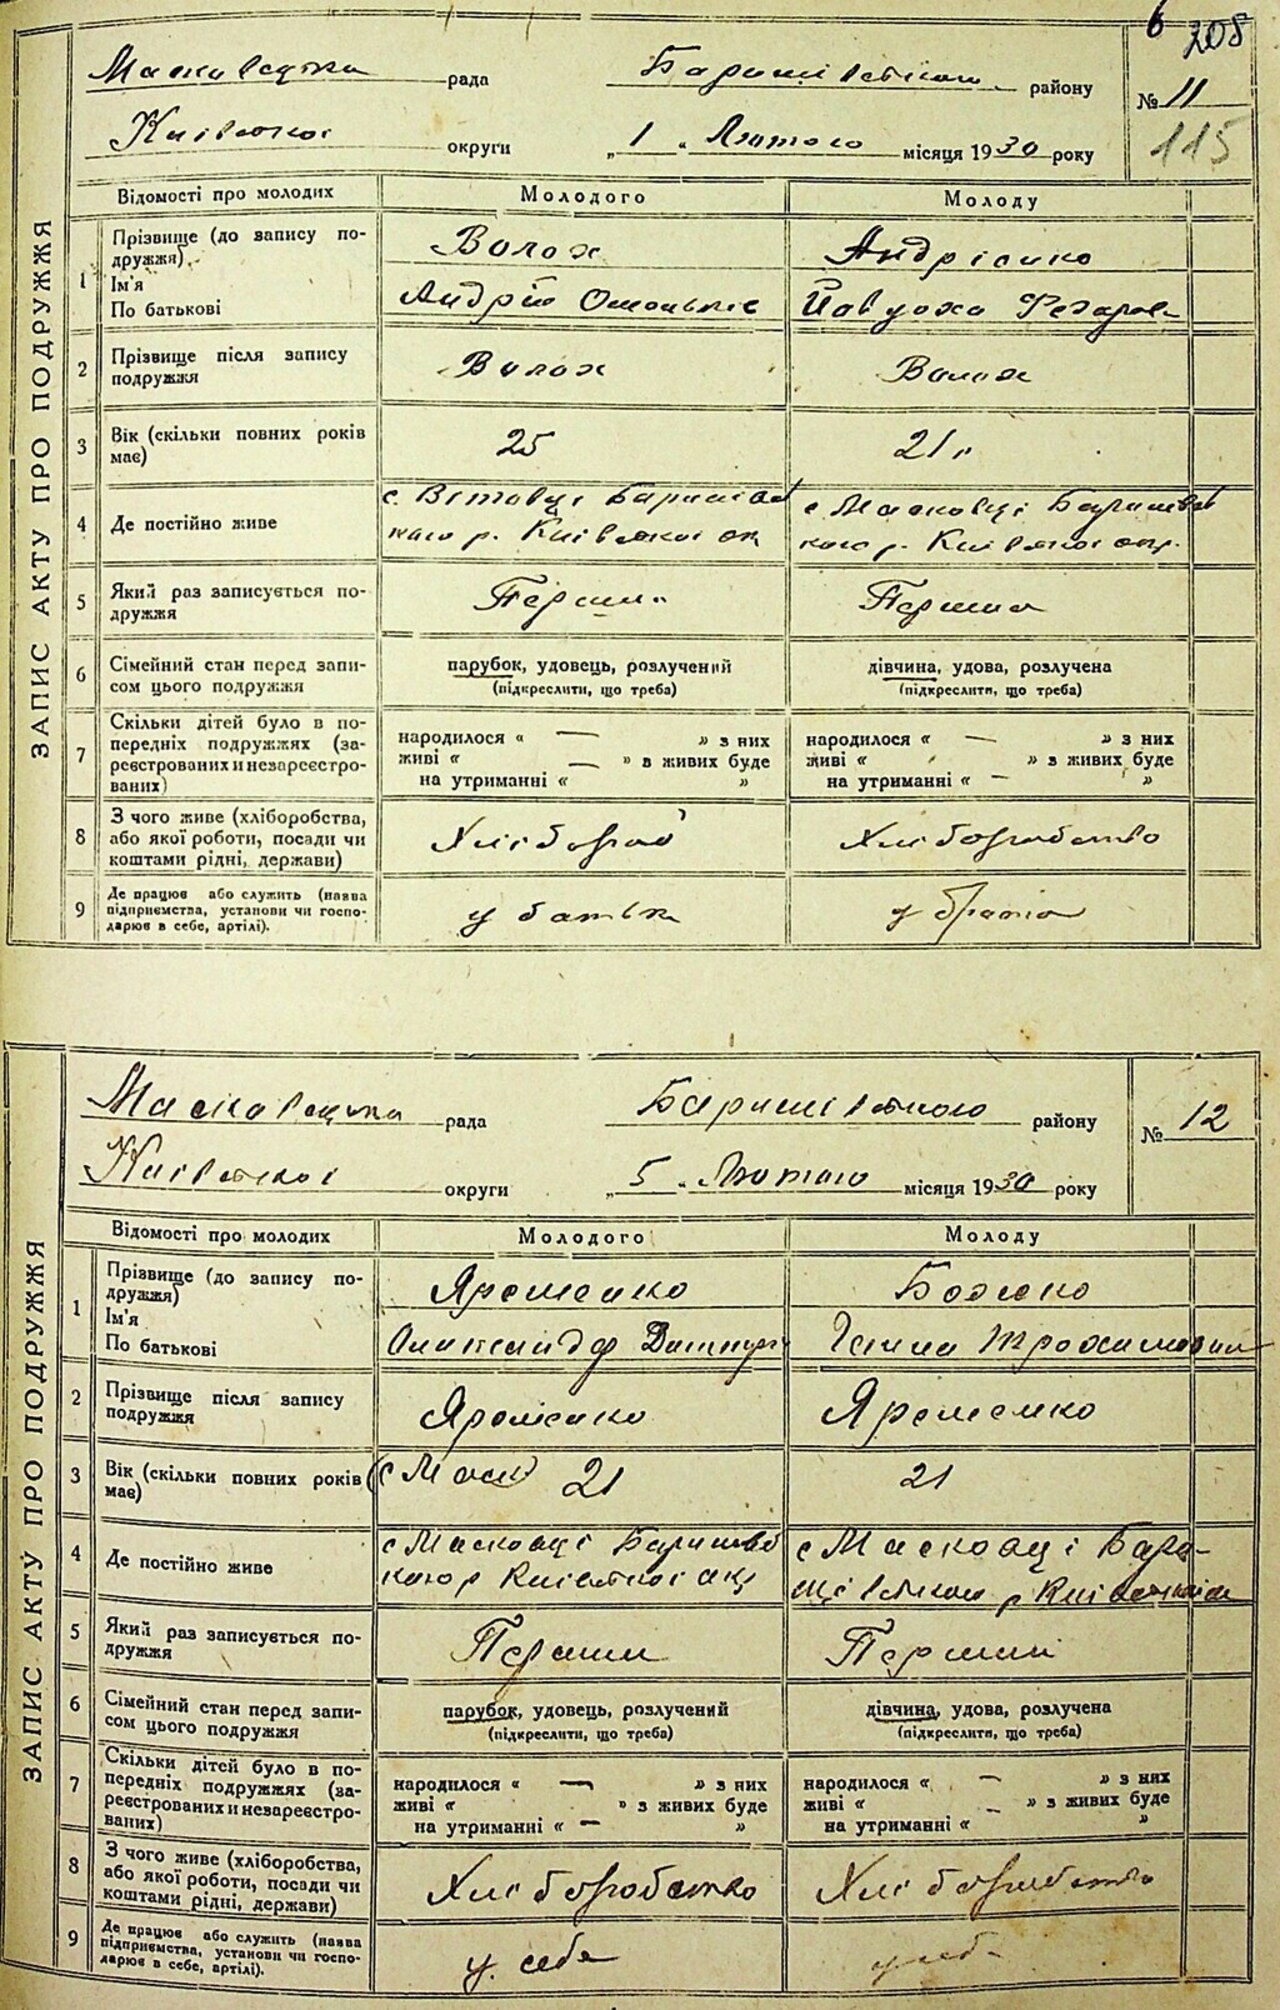 6 208
Масковецька рада Баришівського району
№ 11
Київської округи „1“ Лютого місяця 1930 року
115
ЗАПИС АКТУ ПРО ПОДРУЖЖЯ
Відомості про молодих Молодого Молоду
1 Прізвище (до запису по-
дружжя) Волох Андрієнко
Ім'я
По батькові Андрій Йовдоха Федоров
2 Прізвище після запису
подружжя Волох Волох
3 Вік (скільки повних років
має) 25 21 г
4 Де постійно живе
с. Вітовці Баришівс с Масковці Баришівс
кого р. Київської ок кого р. Київської окр.
5 Який раз записується по-
дружжя Перши Перши
6 Сімейний стан перед запи-
сом цього подружжя
парубок, удовець, розлучений дівчина, удова, розлучена
(підкреслити, що треба) (підкреслити, що треба)
7 Скільки дітей було в по-
передніх подружжях (за-
реєстрованих и незареєстро-
ваних)
народилося « — » з них народилося « — » з них
живі « — » в живих буде живі « » з живих буде
на утриманні « » на утриманні « — »
8 З чого живе (хліборобства,
або якої роботи, посади чи
коштами рідні, держави)
Хлібороб Хліборобство
9 Де працює або служить (назва
підприємства, установи чи госпо-
дарює в себе, артілі).
у батьк у брата
Масковецька рада Баришівського району
№ 12
Київської округи „5“ Лютого місяця 1930 року
ЗАПИС АКТУ ПРО ПОДРУЖЖЯ
Відомості про молодих Молодого Молоду
1 Прізвище (до запису по-
дружжя) Яременко Божко
Ім'я
По батькові Олександр Дмитр Ганна Трохимовна
2 Прізвище після запису
подружжя Яременко Яременко
3 Вік (скільки повних років
має) (с Маск) 21 21
4 Де постійно живе
с Масковці Баришівс с Масковці Бари-
кого р Київської окр шівського р Київської
5 Який раз записується по-
дружжя Перши Перший
6 Сімейний стан перед запи-
сом цього подружжя
парубок, удовець, розлучений дівчина, удова, розлучена
(підкреслити, що треба) (підкреслити, що треба)
7 Скільки дітей було в по-
передніх подружжях (за-
реєстрованих и незареєстро-
ваних)
народилося « — » з них народилося « — » з них
живі « » з живих буде живі « — » з живих буде
на утриманні « — » на утриманні « »
8 З чого живе (хліборобства,
або якої роботи, посади чи
коштами рідні, держави)
Хліборобство Хліборобство
9 Де працює або служить (назва
підприємства, установи чи госпо-
дарює в себе, артілі).
у себе у себ